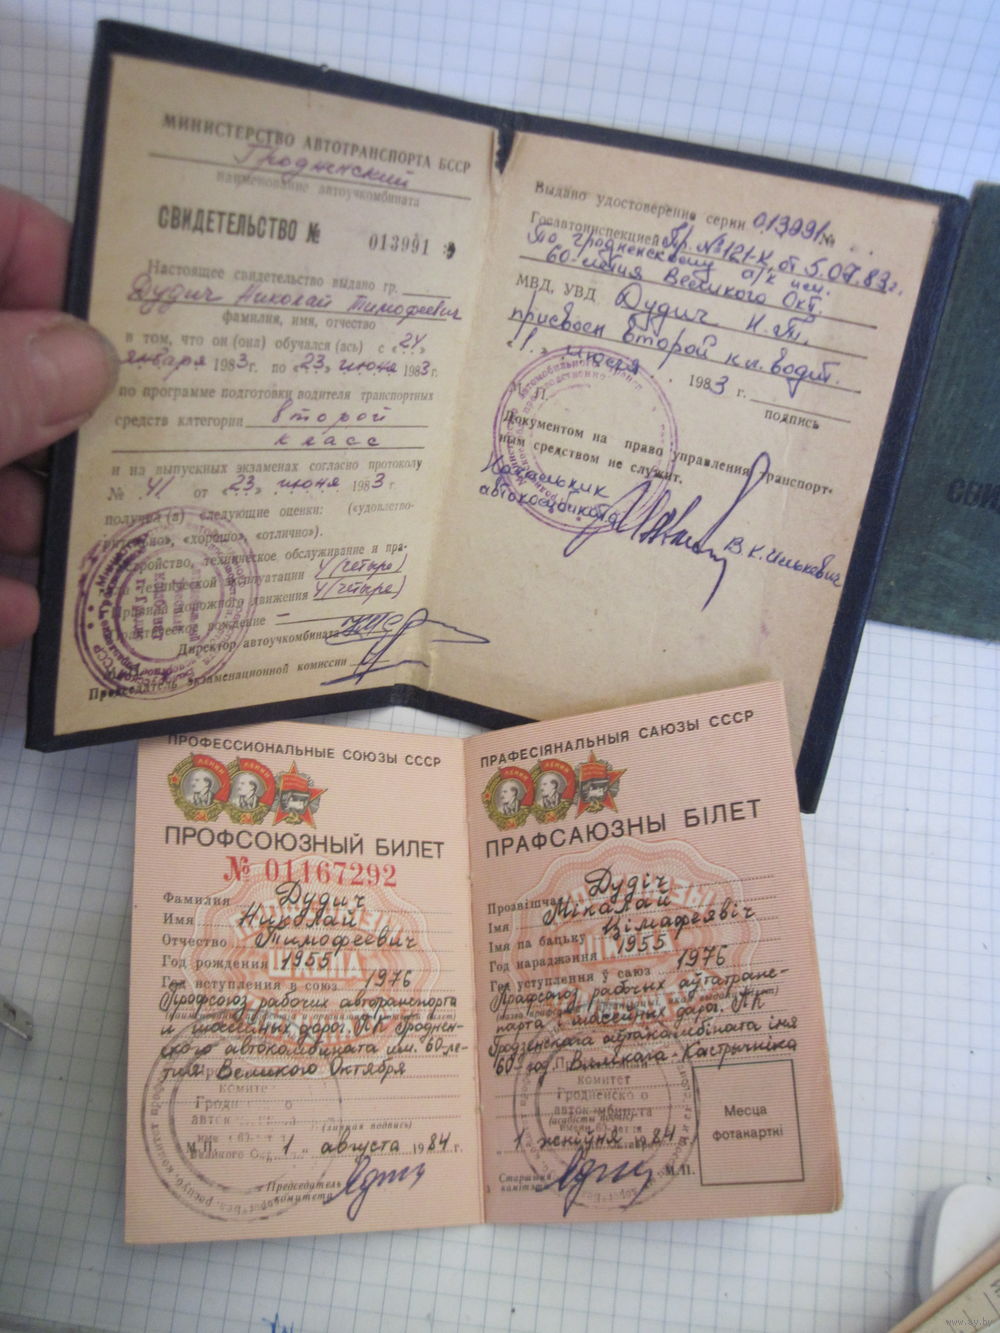 МИНИСТЕРСТВО АВТОТРАНСПОРТА БССР
Гродненский
наименование автоучкомбината
СВИДЕТЕЛЬСТВО №
013991
Настоящее свидетельство выдано гр.
Дудич Николай Тимофеевич
фамилия, имя, отчество
в том, что он (она) обучался (ась) с «24»
января 1983 г. по «23» июня 1983 г.
по программе подготовки водителя транспортных
средств категории второй
класс
и на выпускных экзаменах согласно протоколу
№ 41 от «23» июня 1983 г.
получил (а) следующие оценки: («удовлетво-
рительно», «хорошо», «отлично»).
Устройство, техническое обслуживание и пра-
вила технической эксплуатации 4 (четыре)
Правила дорожного движения 4 (четыре)
Практическое вождение —
Директор автоучкомбината
Председатель экзаменационной комиссии
Выдано удостоверение серии 013991 №
Госавтоинспекцией Пр. № 121-К от 5.07.83г.
По гродненскому а/к им.
60-летия Великого Окт.
МВД, УВД Дудич Н.Т.
присвоен второй кл. водит.
«1» июля 1983 г.
подпись
М. П.
Документом на право управления транспорт-
ным средством не служит.
Начальник
автокомбината
В.К. Илькевич
ПРОФЕССИОНАЛЬНЫЕ СОЮЗЫ СССР
ЛЕНИН
ЛЕНИН
ПРОФСОЮЗНЫЙ БИЛЕТ
№ 01167292
Фамилия Дудич
Имя Николай
Отчество Тимофеевич
Год рождения 1955
Год вступления в союз 1976
Профсоюз рабочих автотранспорта
и шоссейных дорог. ПК Гроднен-
ского автокомбината им. 60-ле-
тия Великого Октября
(личная подпись)
М.П. 1 августа 1984 г.
Председатель
комитета
ПРАФЕСІЯНАЛЬНЫЯ САЮЗЫ СССР
ЛЕНИН
ЛЕНИН
ПРАФСАЮЗНЫ БІЛЕТ
Прозвішча Дудіч
Імя Мікалай
Імя па бацьку Цімафеявіч
Год нараджэння 1955
Год уступлення ў саюз 1976
Прафсаюз рабочых аўтатранс-
парта і шасейных дарог. ПК
Гродзенскага аўтакамбіната імя
60 год. Вялікага Кастрычніка
Профсоюзный
комитет
Гродненско о
автокомбината
имени 60-летия
(асабісты подпіс)
1 жніўня 1984
Старшыня
камітэта
М.П.
Месца
фотакарткі
www.ay.by